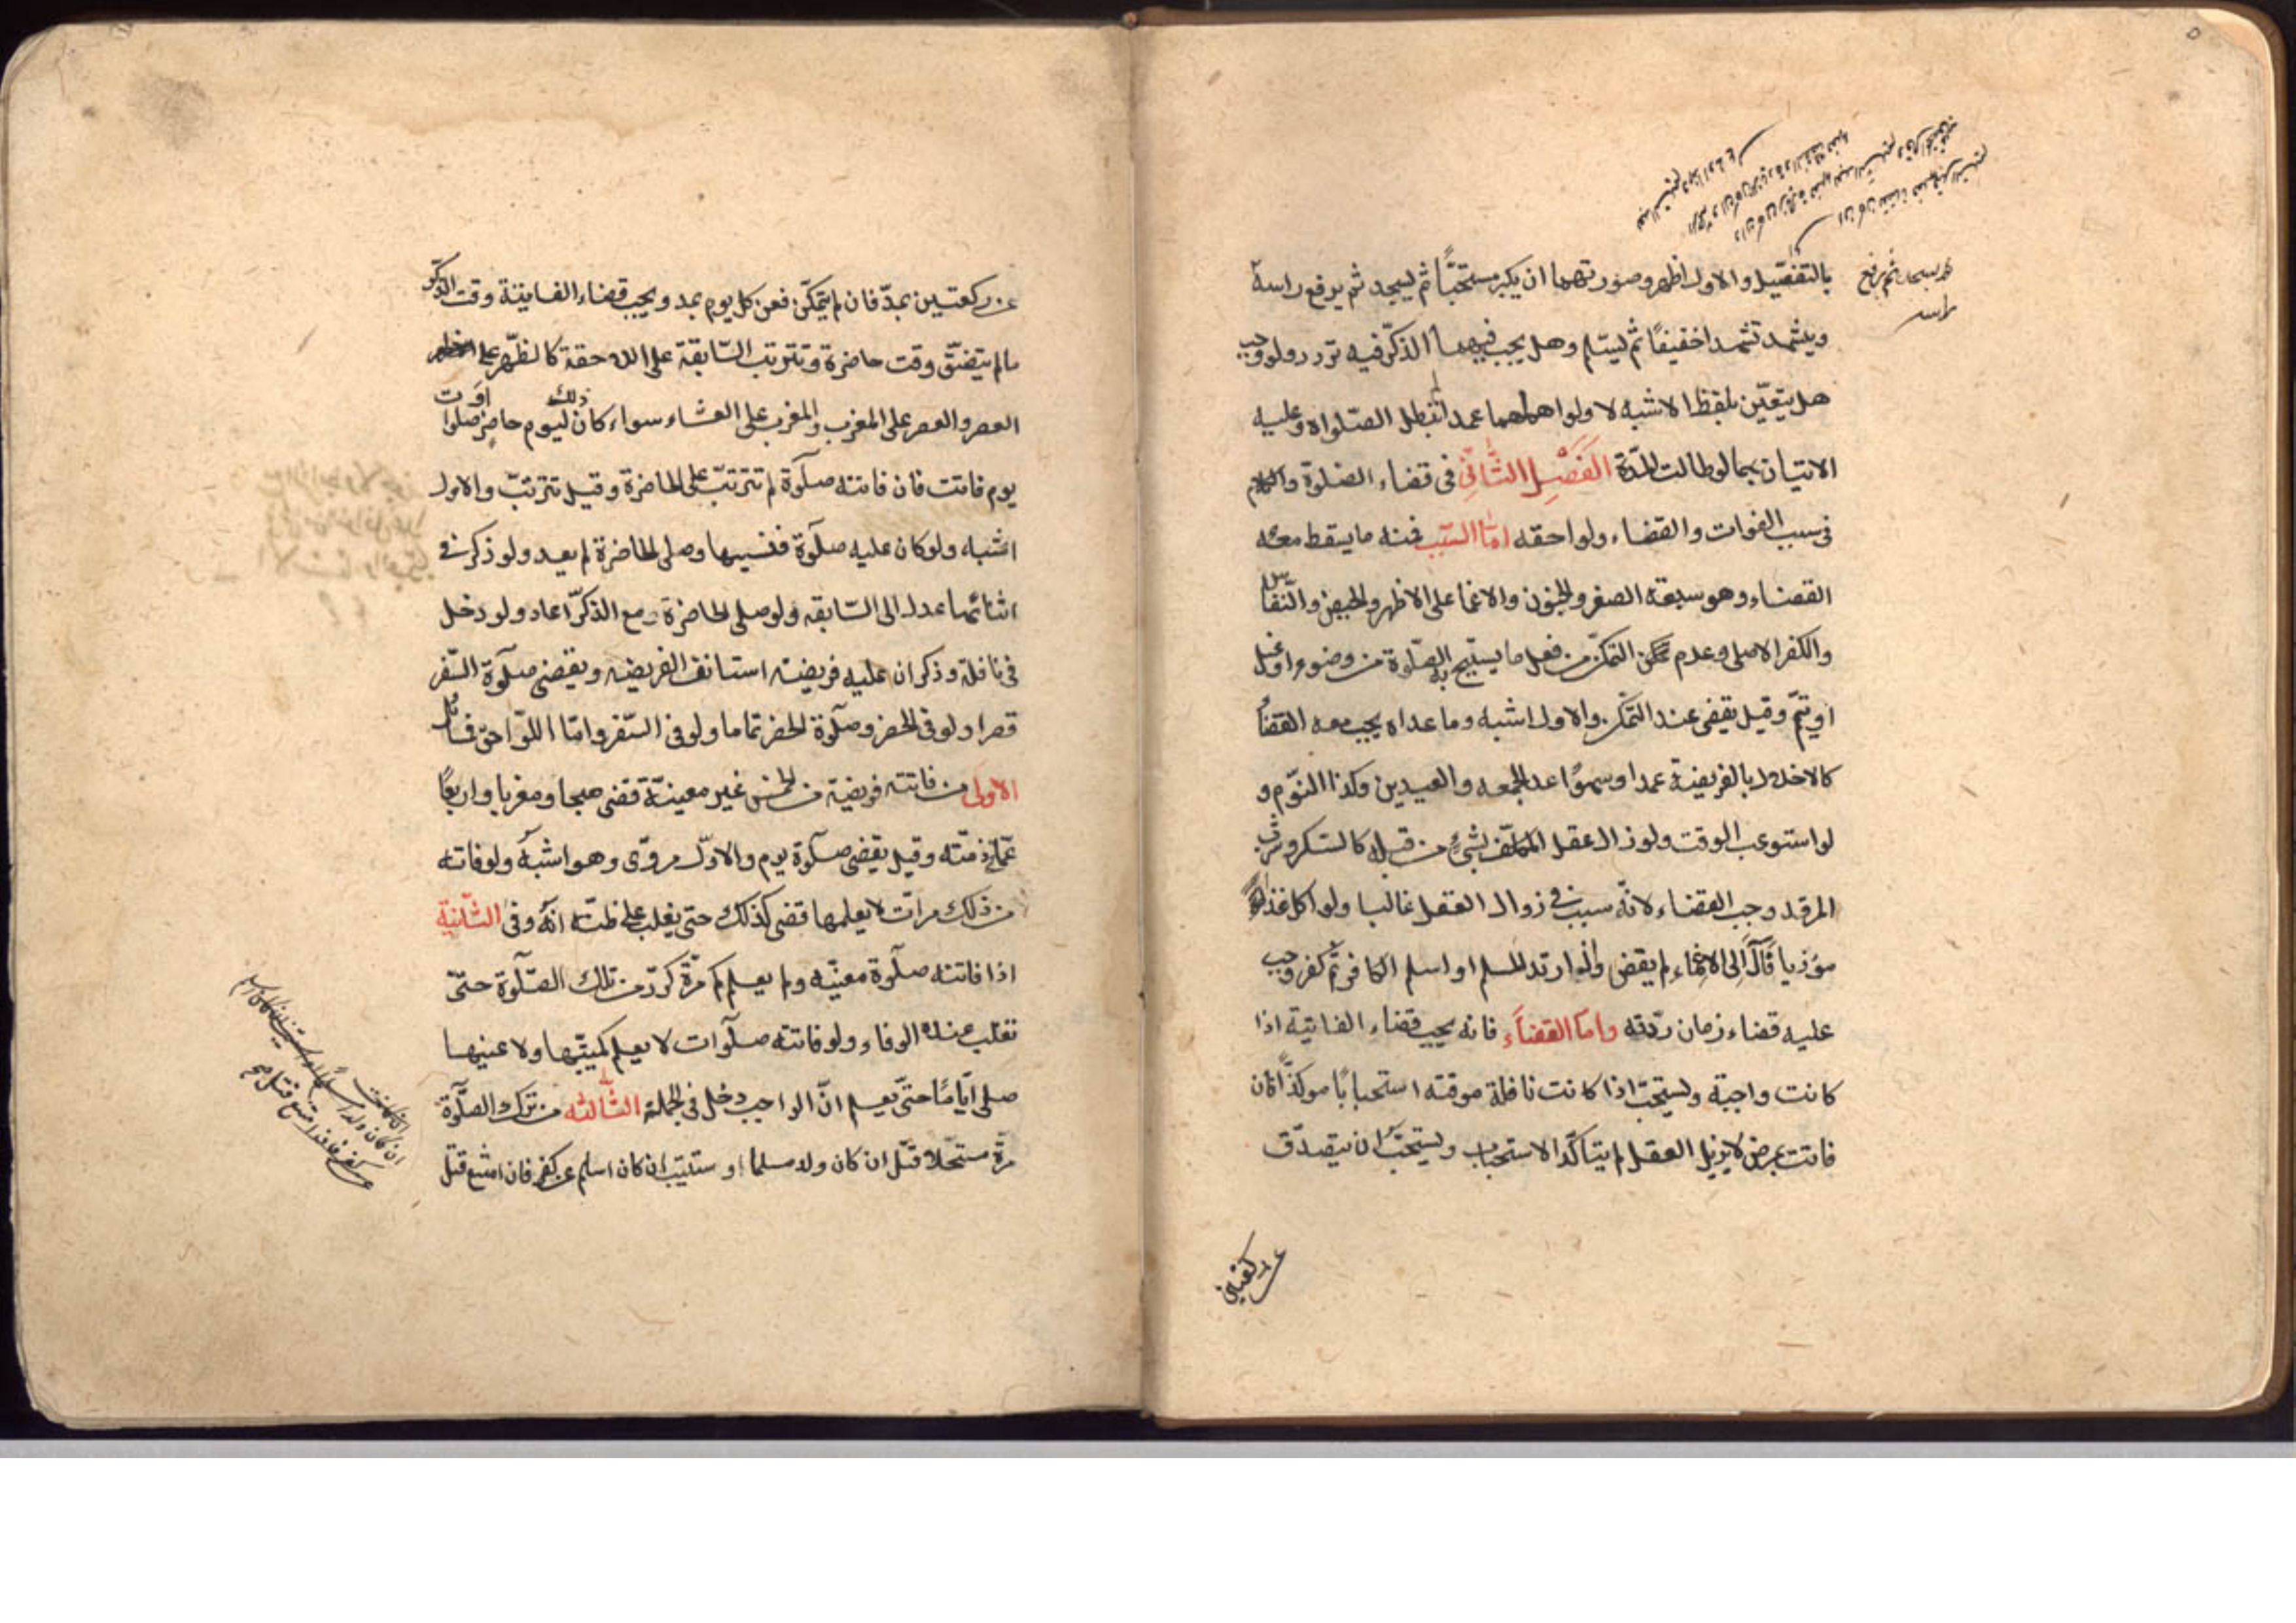 بالتفصيل والاول اظهر وصورتهما ان يكبر مستحبّاً ثم يسجد ثم يرفع راسه
ثم يسجد ثم يرفع
راسه
ويتشهد تشهدا خفيفاً ثم يسلم وهل يجب فيهما الذكر فيه تردد ولو وجب
هل يتعيّن بلفظ الاشبه لا ولو اهملهما عمدا لم تبطل الصّلواة وعليه
الاتيان بهما لو طالت المدّة الفَصْلِ الثَّانِيْ في قضاء الصّلوة والكلام
في سبب الفوات والقضاء ولواحقه امّا السّبب فمنه ما يسقط معه
القضاء وهو سبعة الصغر والجنون والاغما على الاظهر والحيض والنّفاس
والكفر الاصلى وعدم التمكّن من فعل ما يستبيح به الصّلوة من وضوء او غسل
او تيمّم وقيل يقضى عند التمكّن والاول اشبه وما عداه يجب معه القضأ
كالاخلال بالفريضة عمدا وسهوًا عدا الجمعه والعيدين وكذا النّوم و
لو استوعب الوقت ولو زال عقل المكلّف بشئ من قبله كالسّكر وشرب
المرقد وجب القضاء لانّه سبب في زوال العقل غالبا ولو اكل غذاء
مؤذيا فآلَ الى الاغماء لم يقض واذا ارتد المسلم او اسلم الكافر ثمّ كفر وجب
عليه قضاء زمان ردّته وامّا القضآء فانه يجب قضاء الفائتة اذا
كانت واجبة ويستحبّ اذا كانت نافلة موقته استحبابًا موكدًا فان
فاتت بمرض لا يزيل العقل لم يتاكّد الاستحباب ويستحبّ ان يتصدّق
عن ركعتين
عن ركعتين بمدّ فان لم يتمكّن فعن كل يوم بمد ويجب قضاء الفايتة وقت الذّكر
ما لم يتضيّق وقت حاضرة وتترتب السّابقة على اللاحقة كالظّهر على
العصر والعصر على المغرب والمغرب على العشاء سواء كان ذلك ليوم حاضر او صلوات
يوم فائت فان فاتته صلوة لم تترتبّ على الحاضرة وقيل تترتبّ والاول
اشبه ولو كان عليه صلوة فنسيها وصلى الحاضرة لم يعد ولو ذكر في
اثنائها عدل الى السّابقه ولو صلى الحاضرة مع الذكر اعاد ولو دخل
في نافلة وذكر ان عليه فريضة استانف الفريضه ويقضى صلوة السّفر
قصرا ولو في الحضر وصلوة الحضر تماما ولو في السّفر وامّا اللّواحق فمسائل
الاولى من فاتته فريضة من الخمس غير معينّة قضى صبحا ومغربا واربعًا
عمّا في ذمّته وقيل يقضى صلوة يوم والاوّل مروّى وهو اشبه ولو فاته
من ذلك مرات لا يعلمها قضى كذلك حتى يغلب على ظنّه انّه وفى الثّانية
اذا فاتته صلوة معيّنه ولم يعلم كم مرّة كرّر من تلك الصّلوة حتّى
تغلب عنده الوفاء ولو فاتته صلوات لا يعلم كميّتها ولا عينها
صلى ايّامًا حتّى يعلم انّ الواجب دخل في الجملة الثّالثه من ترك الصلّوة
مرّة مستحلّا قتل ان كان ولد مسلما او ستتيب ان كان اسلم عن كفر فان امتنع قتل